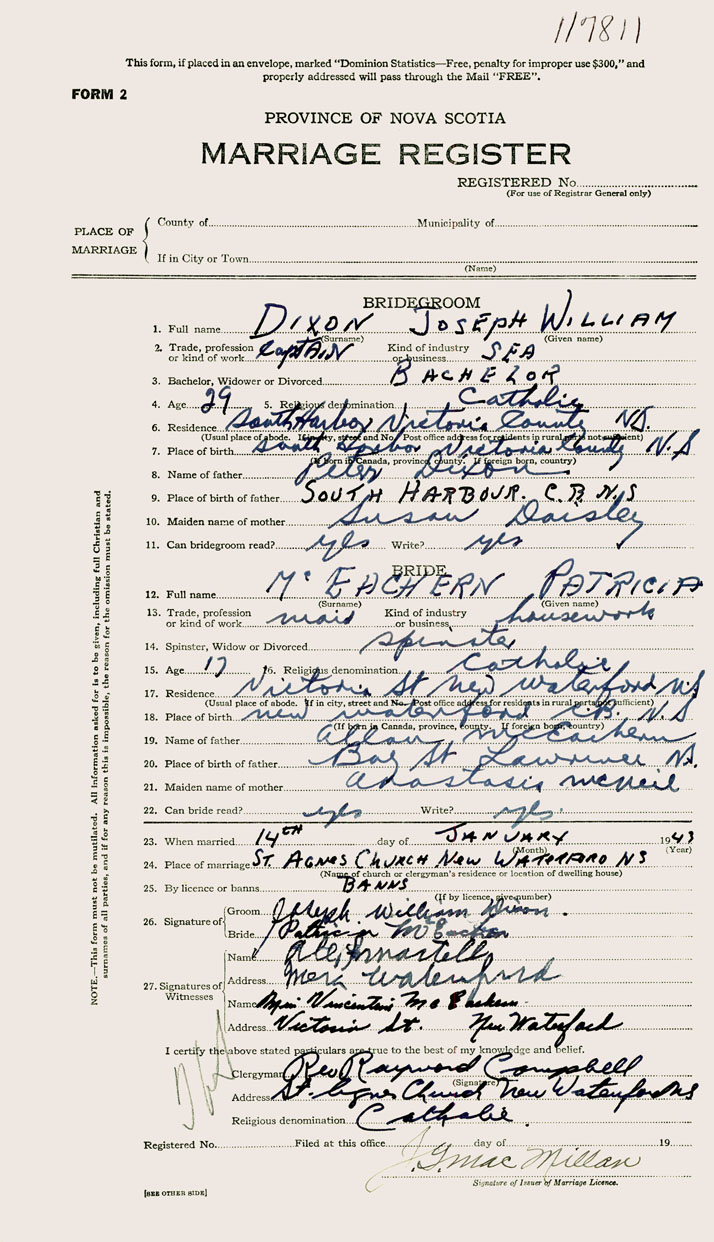 117811
This form, if placed in an envelope, marked “Dominion Statistics—Free, penalty for improper use $300,” and
properly addressed will pass through the Mail “FREE”.
FORM 2
PROVINCE OF NOVA SCOTIA
MARRIAGE REGISTER
REGISTERED No.
(For use of Registrar General only)
PLACE OF MARRIAGE
County of Municipality of
If in City or Town
(Name)
BRIDEGROOM
1. Full name DIXON JOSEPH WILLIAM
(Surname) (Given name)
2. Trade, profession or kind of work CaptAIN Kind of industry or business SEA
3. Bachelor, Widower or Divorced BACHELOR
4. Age 29 5. Religious denomination Catholic
6. Residence South Harbor Victoria County NS.
(Usual place of abode. If in city, street and No. Post office address for residents in rural parts not sufficient)
7. Place of birth South Harbor Victoria County N.S
(If born in Canada, province, county. If foreign born, country)
8. Name of father Peter Dixon
9. Place of birth of father SOUTH HARBOUR. C.B. N.S
10. Maiden name of mother Susan Daisley
11. Can bridegroom read? yes Write? yes
BRIDE
12. Full name McEACHERN PATRICIA
(Surname) (Given name)
13. Trade, profession or kind of work maid Kind of industry or business, housework
14. Spinster, Widow or Divorced spinster
15. Age 17 16. Religious denomination Catholic
17. Residence Victoria St New Waterford NS
(Usual place of abode. If in city, street and No. Post office address for residents in rural parts not sufficient)
18. Place of birth new waterford C.B. N.S
(If born in Canada, province, county. If foreign born, country)
19. Name of father Allan McEachern
20. Place of birth of father Bay St Lawrence NS.
21. Maiden name of mother anastasia mcneil
22. Can bride read? yes Write? yes
23. When married 14TH day of JANUARY 1943
(Month) (Year)
24. Place of marriage ST. AGNES CHURCH NEW WATERFORD NS
(Name of church or clergyman's residence or location of dwelling house)
25. By licence or banns BANNS
(If by licence, give number)
26. Signature of Groom Joseph William Dixon.
Bride Patricia McEachern
27. Signatures of Witnesses
Name Martell
Address New Waterford
Name Vincentini McEachern
Address Victoria St. New Waterford
I certify the above stated particulars are true to the best of my knowledge and belief.
Clergyman Rev Raymond Campbell
(Signature)
Address St. Agnes Church New Waterford NS
Religious denomination Catholic.
Registered No. Filed at this office day of 19
J.G. MacMillan
Signature of Issuer of Marriage Licence.
[SEE OTHER SIDE]
NOTE.—This form must not be mutilated. All information asked for is to be given, including full Christian and
surnames of all parties, and if for any reason this is impossible, the reason for the omission must be stated.